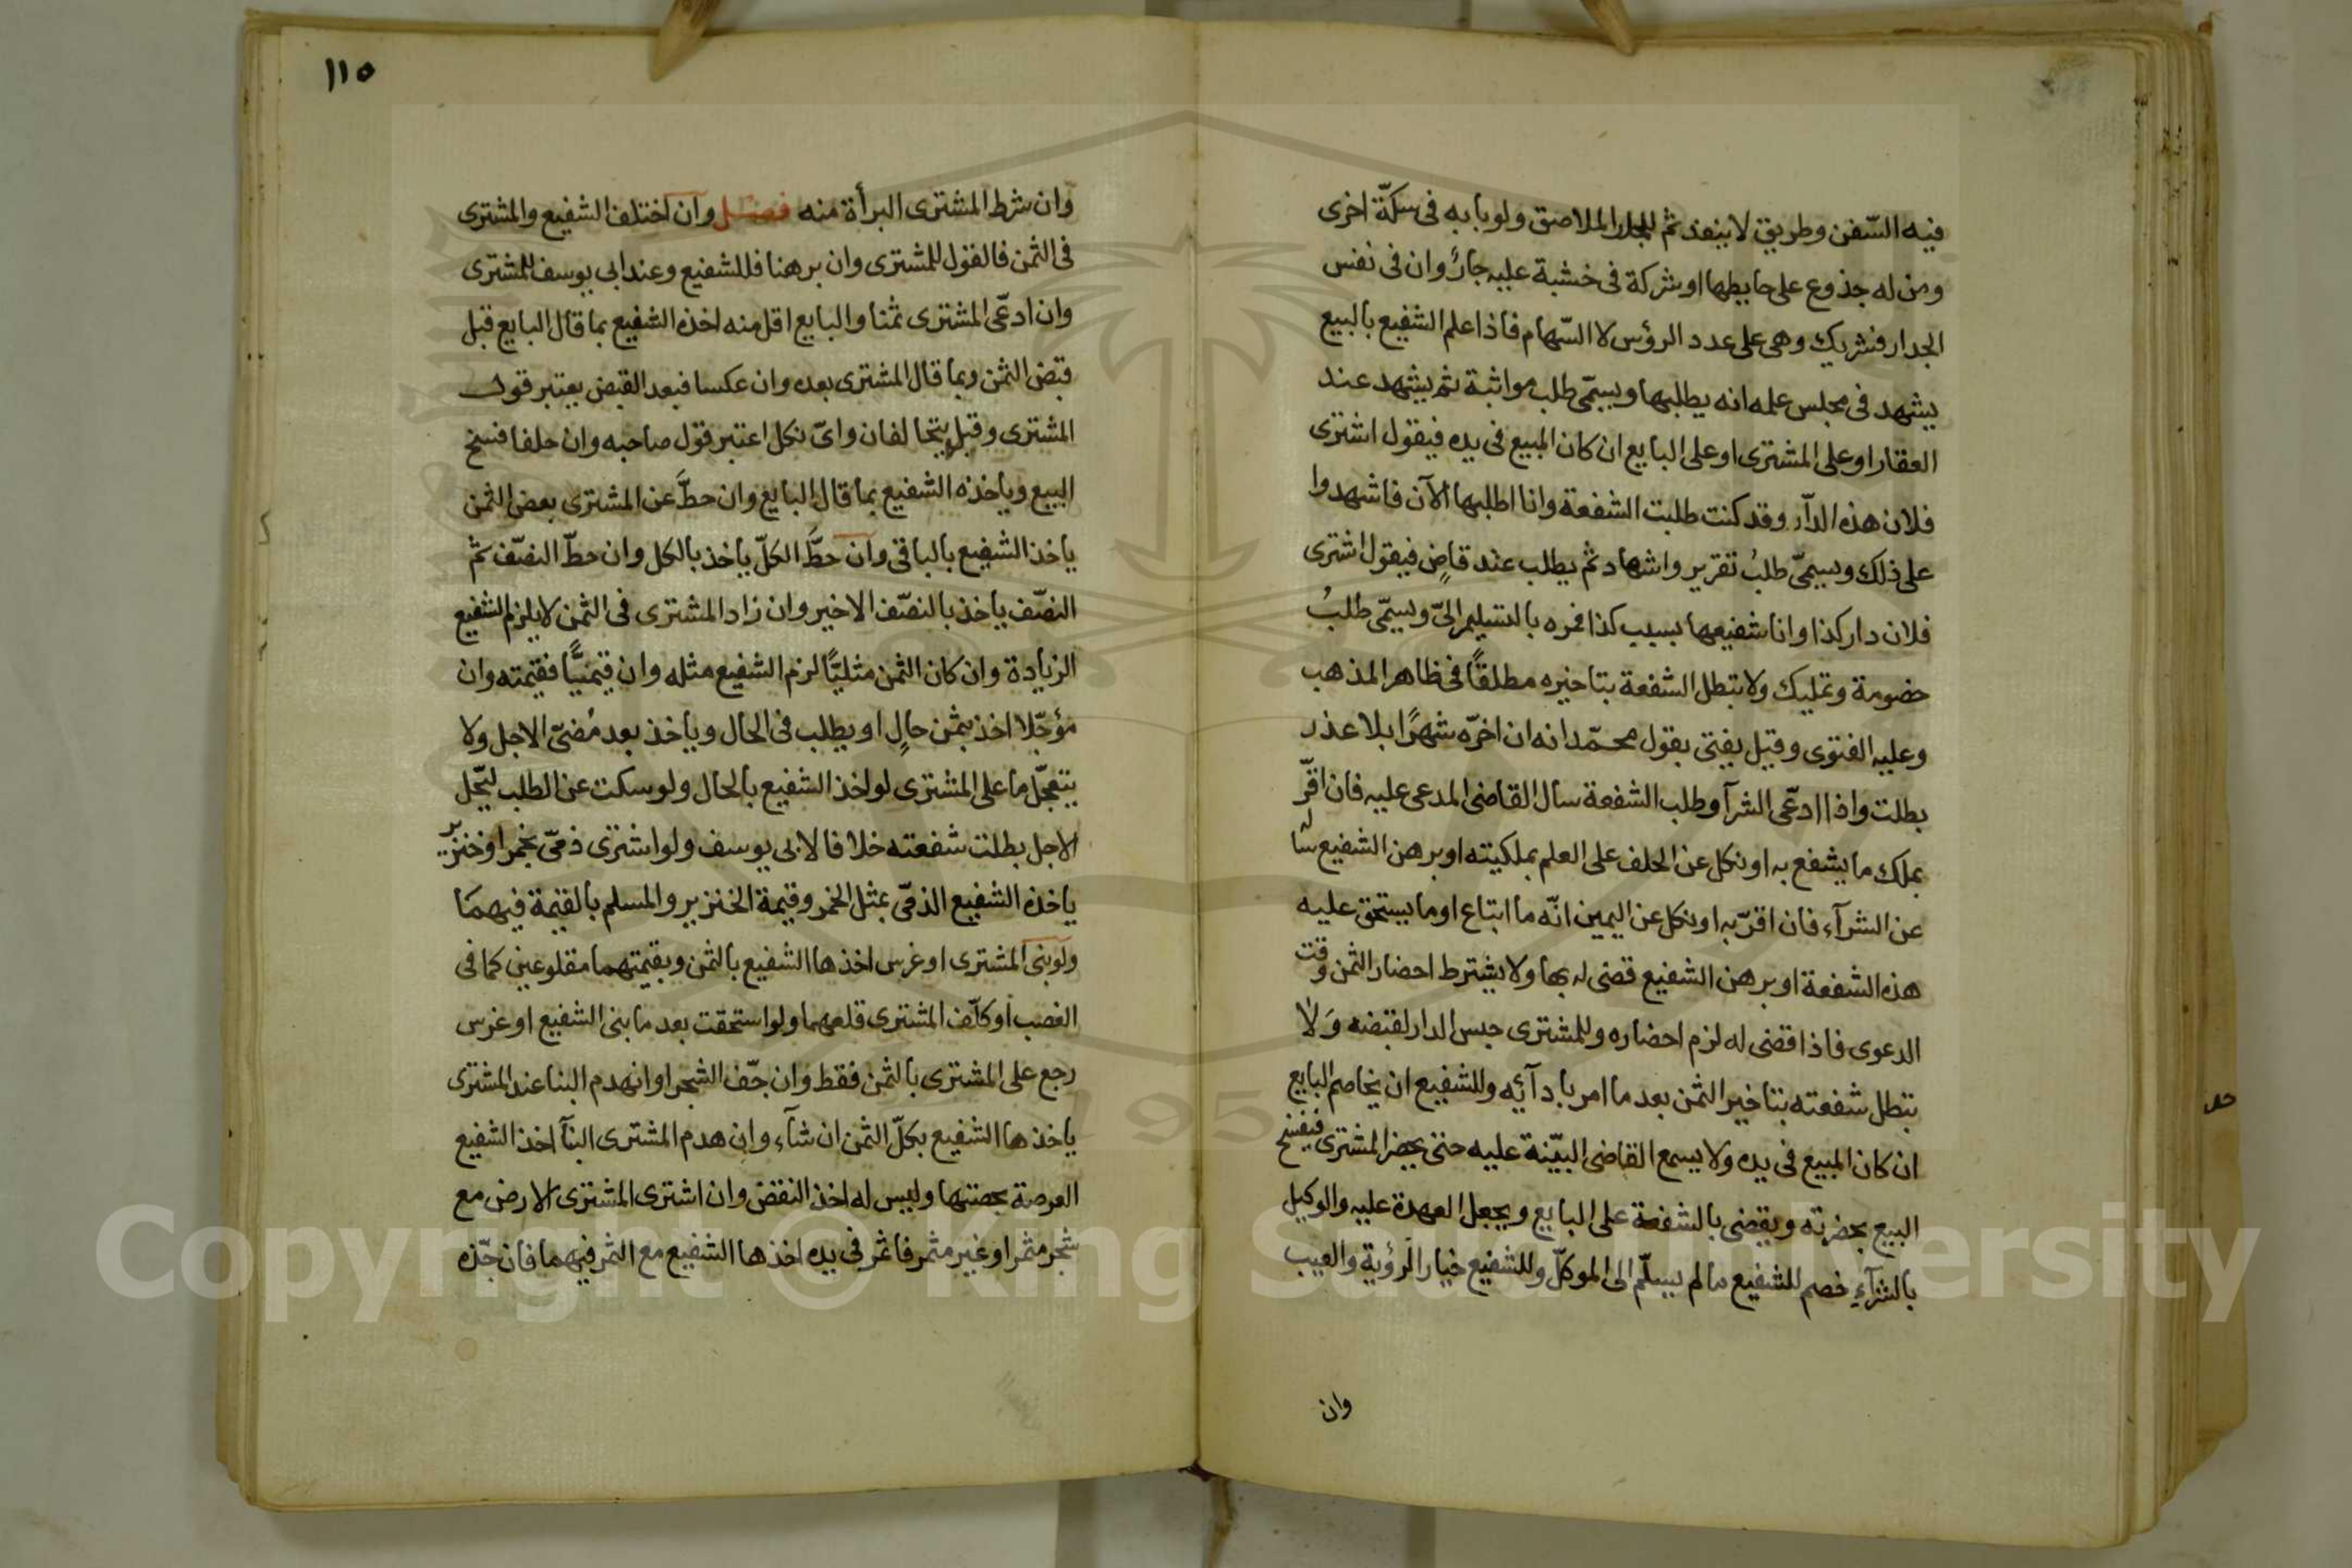 فيه السّفن وطريق لا ينفذ ثم للجار الملاصق ولو بابه فى سكّة اخرى
ومن له جذوع على حايطها او شركة فى خشبة عليه جار وان فى نفس
الجدار فشريك وهى على عدد الرؤس لا السّهام فاذا علم الشفيع بالبيع
يشهد فى مجلس علمه انه يطلبها ويسمّى طلب مواثبة ثم يشهد عند
العقار او على المشترى او على البايع ان كان المبيع فى يده فيقول اشترى
فلان هذه الدآر وقد كنت طلبت الشفعة وانا اطلبها الآن فاشهدوا
على ذلك ويسمىّ طلبُ تقرير واشهاد ثم يطلب عند قاضٍ فيقول اشترى
فلان دار كذا وانا شفيعها بسبب كذا فمره بالتسليم الىّ ويسمّى طلبُ
خصومة وتمليك ولا تبطل الشفعة بتاخيره مطلقًا فى ظاهر المذهب
وعليه الفتوى وقيل يفتى بقول محمّد انه ان اخرّه شهرًا بلا عذر
بطلت واذا ادعّى الشرآ وطلب الشفعة سال القاضى المدعى عليه فان اقرّ
بملك ما يشفع به او نكل عن الحلف على العلم بملكيته او برهن الشفيع ساله
عن الشرآء فان اقرّ به او نكل عن اليمين انّه ما ابتاع او ما يستحق عليه
هذه الشفعة او برهن الشفيع قضى له بها ولا يشترط احضار الثمن وقت
الدعوى فاذا قضى له لزم احضاره وللمشترى حبس الدار لقبضه وَلا
تبطل شفعته بتاخير الثمن بعد ما امر بادآئه وللشفيع ان يخاصم البايع
ان كان المبيع فى يده ولا يسمع القاضى البيّنة عليه حتى يحضر المشترى فيفسخ
البيع بحضرته ويقضى بالشفعة على البايع ويجعل العهدة عليه والوكيل
بالشرآء خصم للشفيع ما لم يسلّم الى الموكلّ وللشفيع خيار الرؤية والعيب
وان
١١٥
وان شرط المشترى البرأة منه فصل وان اختلف الشفيع والمشترى
فى الثمن فالقول للمشترى وان برهنا فللشفيع وعند ابى يوسف للمشترى
وان ادعّى المشترى ثمنا والبايع اقل منه اخذه الشفيع بما قال البايع قبل
قبض الثمن وبما قال المشترى بعده وان عكسا فبعد القبض يعتبر قول
المشترى وقبله يتحالفان واىّ نكل اعتبر قول صاحبه وان حلفا فسخ
البيع وياخذه الشفيع بما قال البايع وان حطَّ عن المشترى بعض الثمن
ياخذ الشفيع بالباقى وان حطَّ الكلّ ياخذ بالكل وان حطّ النصّف ثم
النصّف ياخذ بالنصّف الاخير وان زاد المشترى فى الثمن لا يلزم الشفيع
الزيادة وان كان الثمن مثليًّا لزم الشفيع مثله وان قيميًّا فقيمته وان
مؤجّلا اخذ بثمن حالٍ او يطلب فى الحال وياخذ بعد مُضىّ الاجل ولا
يتعجّل ما على المشترى لو اخذ الشفيع بالحال ولو سكت عن الطلب ليحّل
الاجل بطلت شفعته خلافا لابى يوسف ولو اشترى ذمىّ بخمر او خنزير
ياخذه الشفيع الذمّى بمثل الخمر وقيمة الخنزير والمسلم بالقيمة فيهمَا
ولو بنى المشترى او غرس اخذها الشفيع بالثمن وبقيمتهما مقلوعين كما فى
الغصب او كلّف المشترى قلعهما ولو استحقت بعد ما بنى الشفيع او غرس
رجع على المشترى بالثمن فقط وان جّف الشجر او انهدم البنا عند المشترى
ياخذها الشفيع بكلّ الثمن ان شآء وان هدم المشترى البنآ اخذ الشفيع
العرصة بحصتها وليس له اخذ النقض وان اشترى المشترى الارض مع
شجر مثمر او غير مثمر فاثمر فى يده اخذها الشفيع مع الثمر فيهما فان جّذه
Copyright © King Saud University